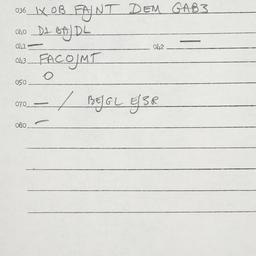 036 1X OB FA/NT DEM GAB3
040 D1 BA/DL
041 — 042 —
043 FACO/MT
050 O
070 — / BE/GL E/3R
080 —